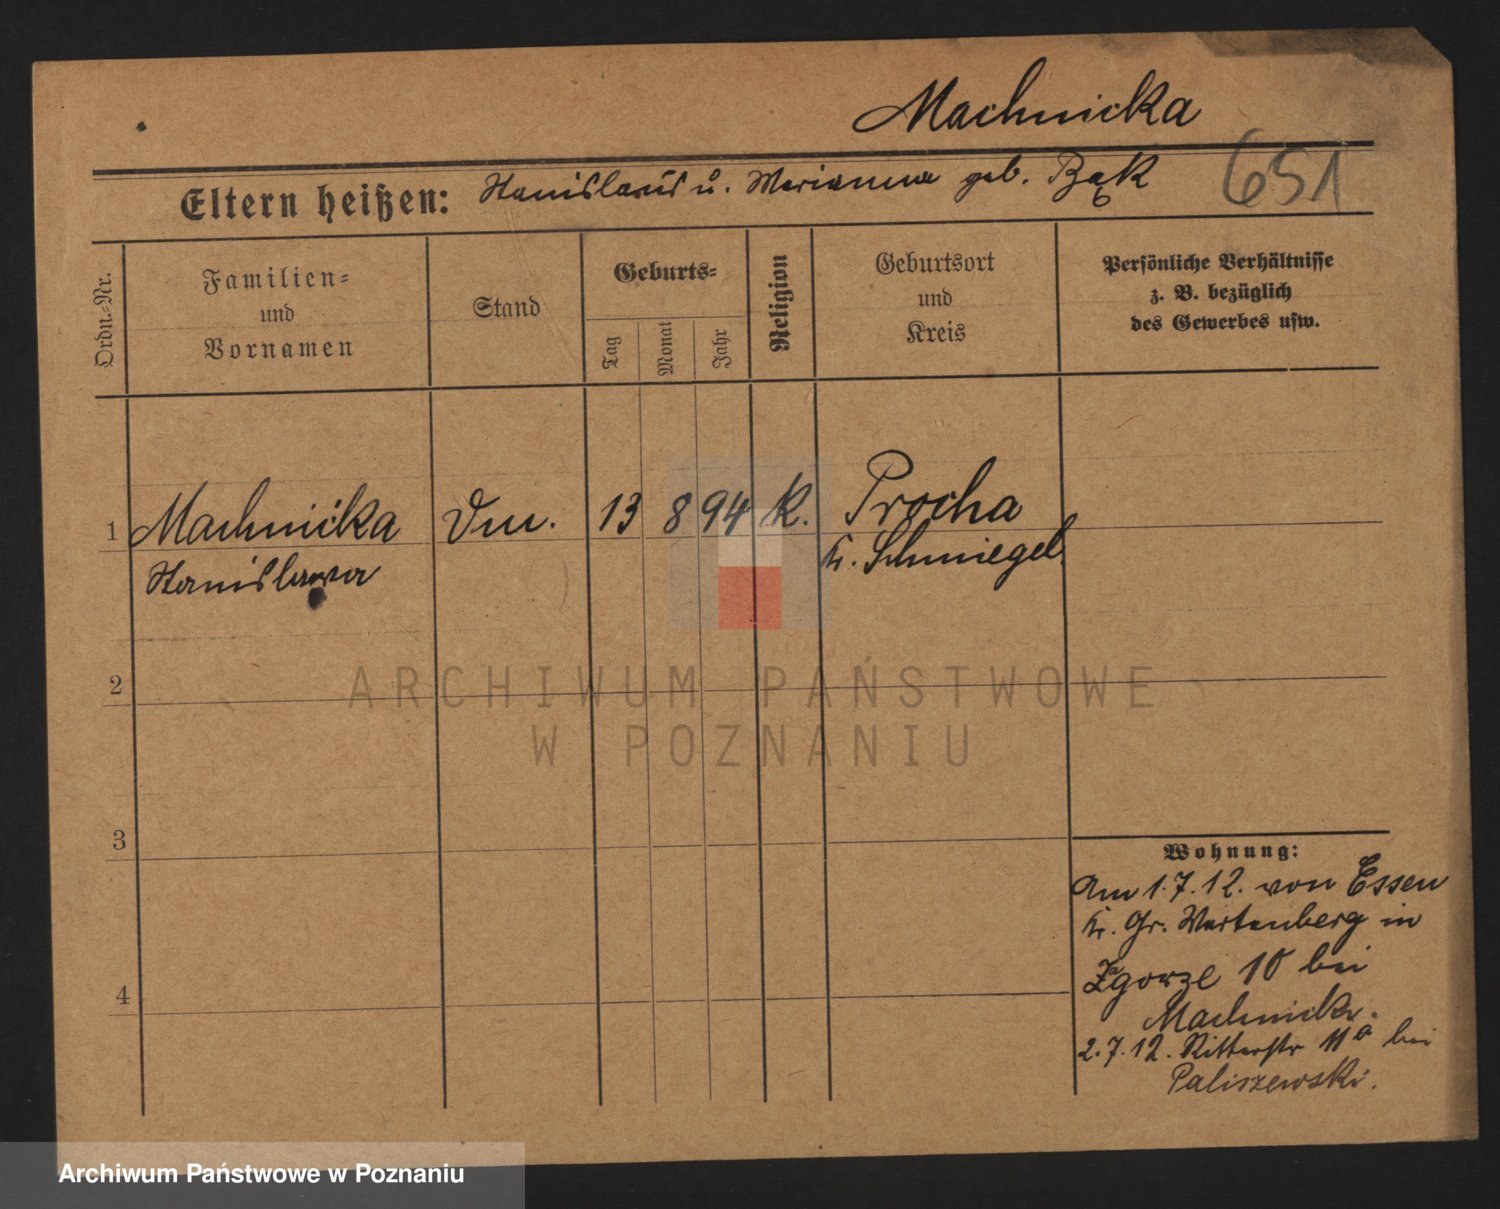 Machnicka
Eltern heißen: Stanislaus u. Marianna geb. Bąk 651
Ordn.-Nr.
Familien-
und
Vornamen
Stand
Geburts-
Tag
Monat
Jahr
Religion
Geburtsort
und
Kreis
Persönliche Verhältnisse
z. B. bezüglich
des Gewerbes usw.
1 Machnicka Dm. 13 8 94 k. Procha
Stanislawa Kr. Schmiegel.
2
ARCHIWUM PAŃSTWOWE
W POZNANIU
3
Wohnung:
Am 1.7.12. von Essen
Kr. Gr. Wartenberg in
Zagorze 10 bei
4
Machnicki.
2.7.12. Ritterstr 11a bei
Paliszewski.
Archiwum Państwowe w Poznaniu